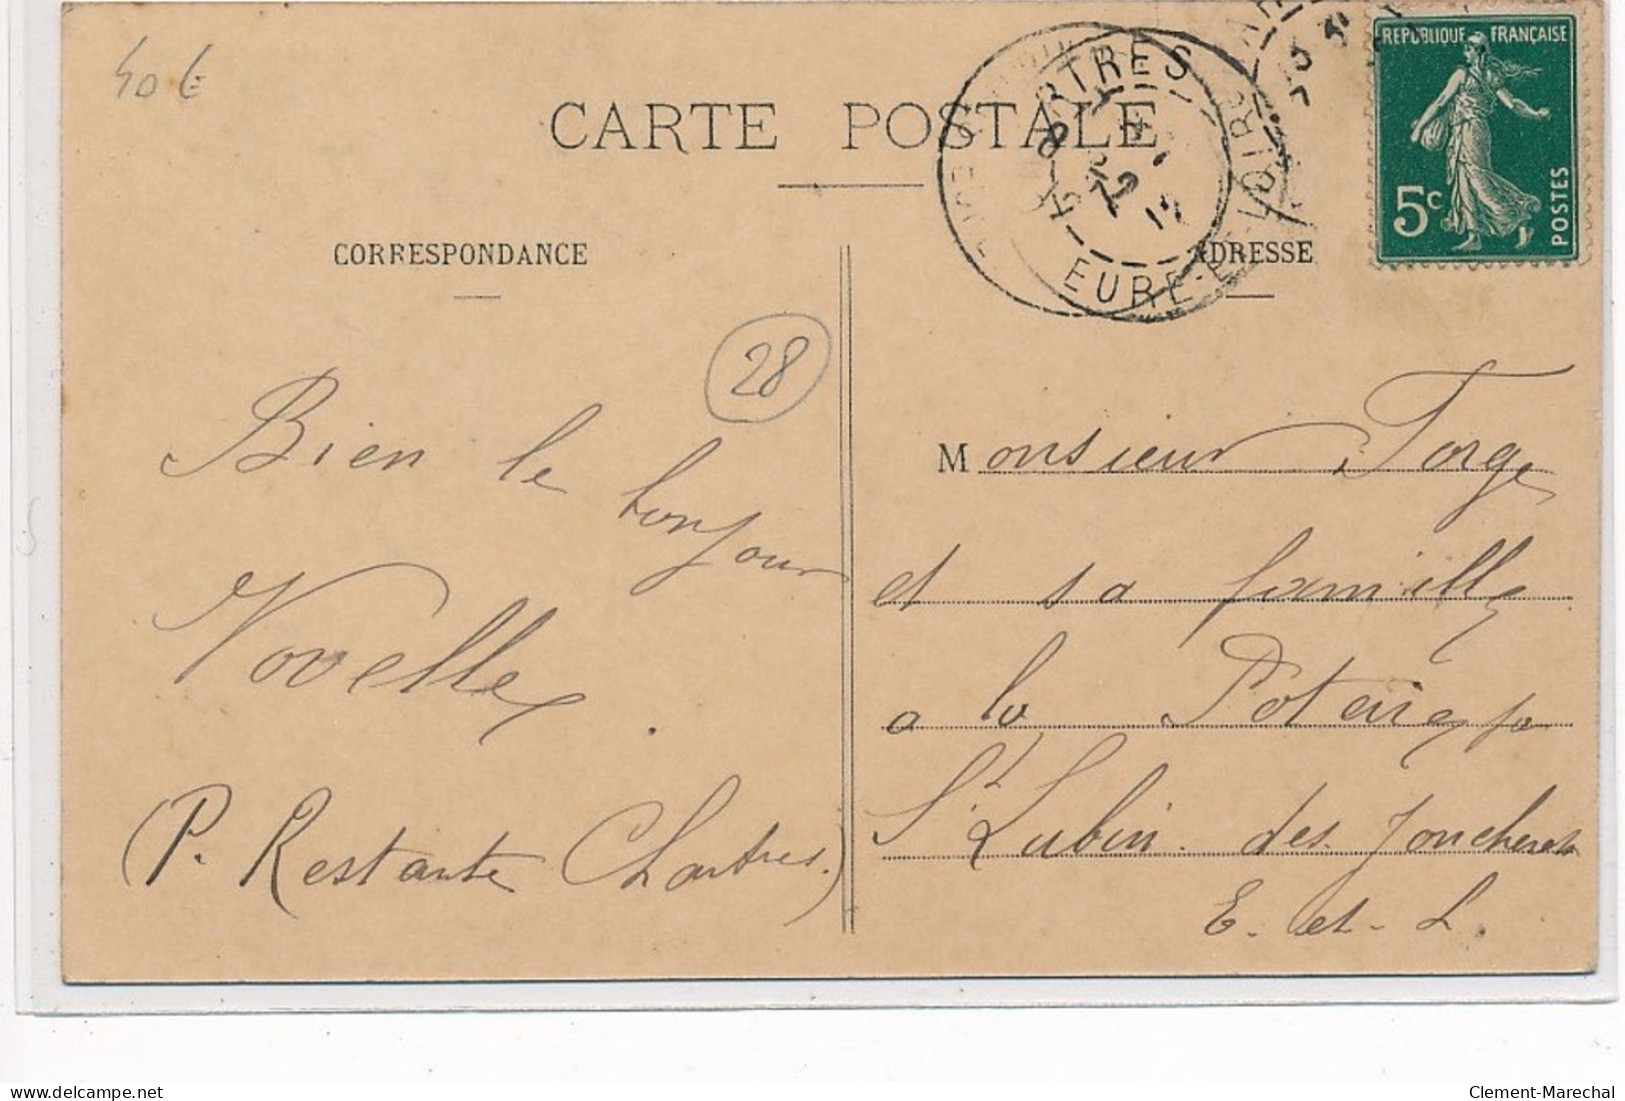 40 €
CARTE POSTALE
REPUBLIQUE FRANÇAISE
5c
POSTES
CHARTRES
EURE-ET-LOIR
CORRESPONDANCE
ADRESSE
28
Bien le bonjour
Novelle.
(P. Restante Chartres.)
Monsieur Forge
et sa famille
a la Poterie par
St Lubin. des. Joncherets
E. et. L.
delcampe.net
Clement-Marechal